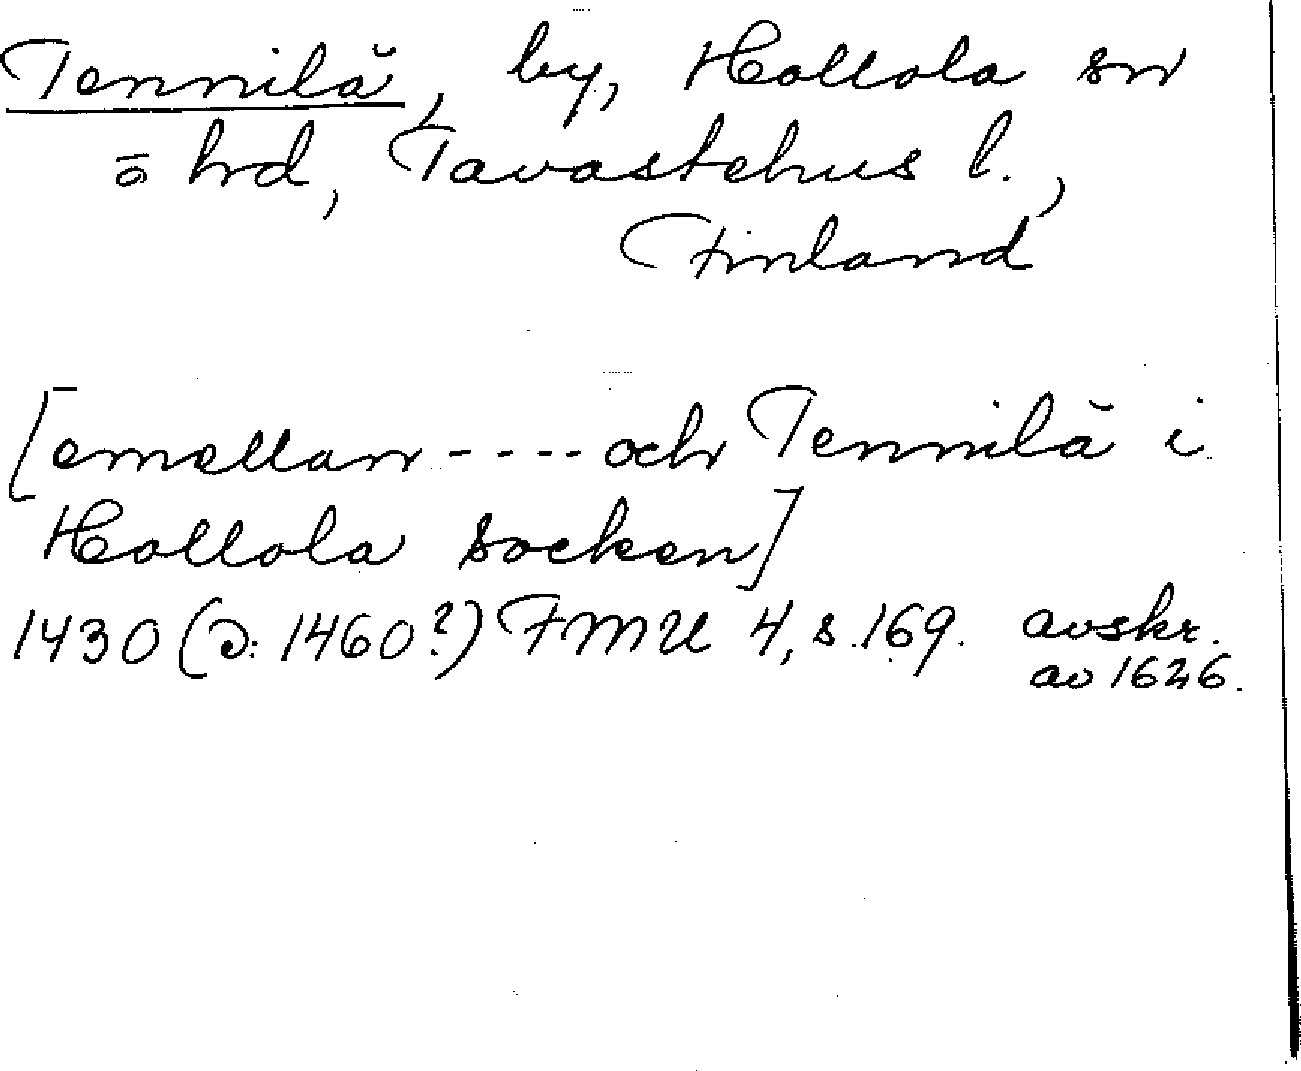 Tennilä, by, Hollola sn
o hrd, Tavastehus l.,
Finland
[emellan ---- och Tennilä i
Hollola socken]
1430 (ɔ: 1460?) FMU 4, s. 169. avskr.
av 1626.